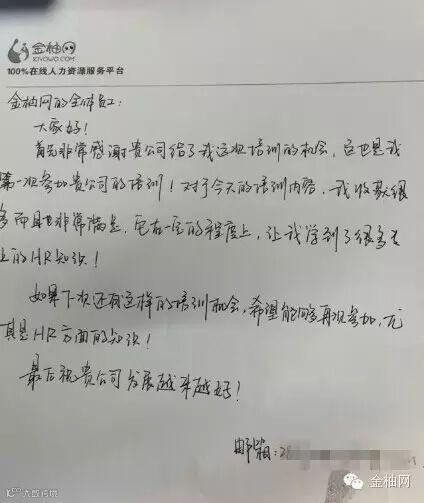 金柚网
XIYOWO.COM
100%在线人力资源服务平台
金柚网的全体员工：
大家好！
首先非常感谢贵公司给了我这次培训的机会，这也是我
第一次参加贵公司的培训！对于今天的培训内容，我收获很
多而且也非常满意，它在一定的程度上，让我学到了很多
上的HR知识！
如果下次还有这样的培训机会，希望能够再次参加，尤
其是HR方面的知识！
最后祝贵公司发展越来越好！
邮箱：28
大数跨境
金柚网